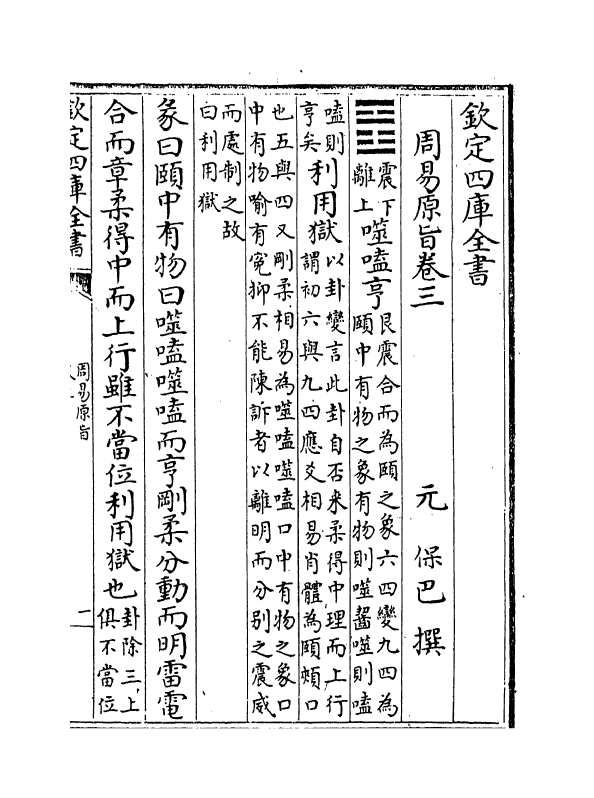 欽定四庫全書
周易原旨卷三
元　保巴　撰
震下
離上
噬嗑亨
艮震合而為頤之象六四變九四為
頤中有物之象有物則噬齧噬則嗑
嗑則
亨矣
利用獄
以卦變言此卦自否来柔得中理而上行
謂初六與九四應爻相易肖體為頤頰口
也五與四又剛柔相易為噬嗑噬嗑口中有物之象口
中有物喻有冤抑不能陳訴者以離明而分别之震威
而處制之故
曰利用獄
彖曰頤中有物曰噬嗑噬嗑而亨剛柔分動而明雷電
合而章柔得中而上行雖不當位利用獄也
卦除三上
俱不當位
欽定四庫全書
周易原旨
一